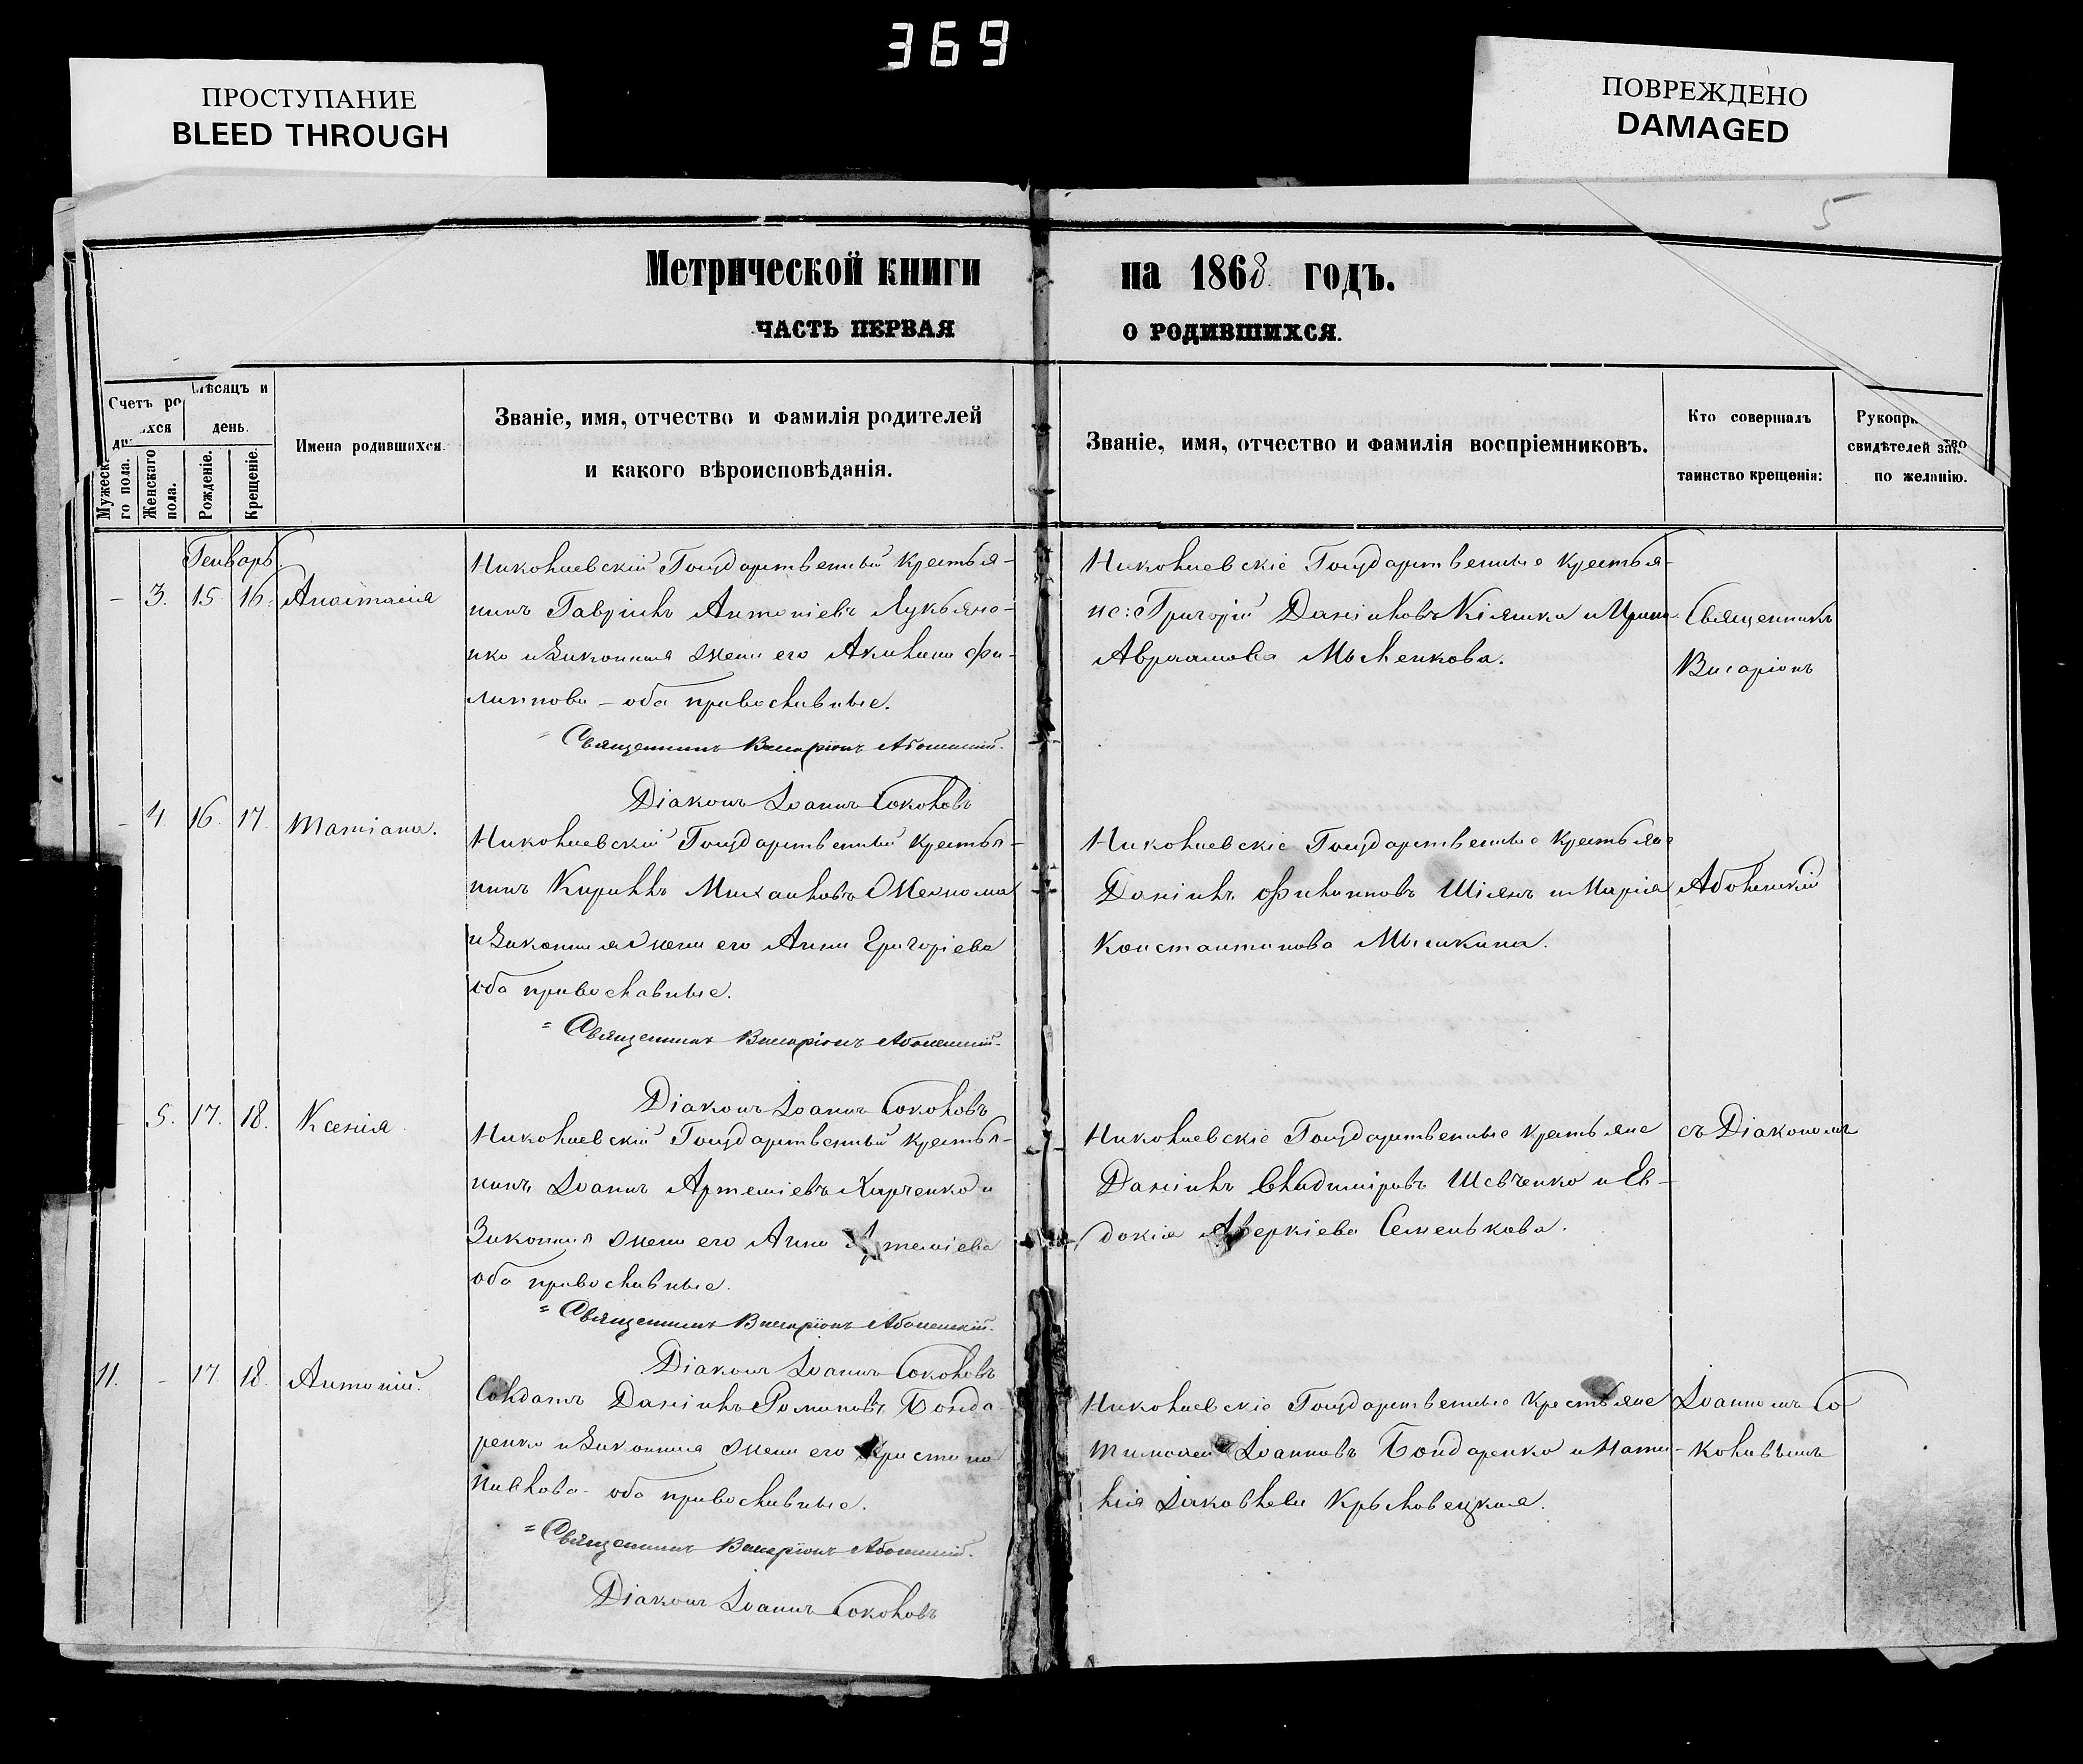 369
ПРОСТУПАНИЕ
BLEED THROUGH
ПОВРЕЖДЕНО
DAMAGED
5
Метрической книги на 1868 годъ.
ЧАСТЬ ПЕРВАЯ О РОДИВШИХСЯ.
Счетъ ро
хся
Мѣсяцъ и
день.
Мужеска
го пола.
Женскаго
пола.
Рожденіе.
Крещеніе.
Имена родившихся.
Званіе, имя, отчество и фамилія родителей
и какого вѣроисповѣданія.
Званіе, имя, отчество и фамилія воспріемниковъ.
Кто совершалъ
таинство крещенія:
Рукопри
свидѣтелей
по желанію.
Генварь
- 3. 15 16. Анастасія
Николаевскій Государственный крестья-
нинъ Гавріилъ Антоніевъ Лукьяне-
нко и Законная жена его Акилина Фи-
липпова - оба православные.
Священникъ Висаріонъ
Діаконъ Іоаннъ Соколовъ
Николаевскіе Государственные крестья-
не: Григорій Даніиловъ Кіяшка и
Авраамова
Священникъ
Висаріонъ
- 4. 16. 17. Татіана.
Николаевскій Государственный крестья-
нинъ Кириллъ Михаиловъ
и Законная жена его Анна Григоріева
оба православные.
Священникъ Висаріонъ
Діаконъ Іоаннъ Соколовъ
Николаевскіе Государственные крестьяне
Даніилъ Филипповъ Шіянъ и Марія
Константинова Мышкина.
- 5. 17. 18. Ксенія
Николаевскій Государственный крестья-
нинъ Іоаннъ Артеміевъ Харченко и
Законная жена его Анна Артеміева
оба православные.
Священникъ Висаріонъ
Діаконъ Іоаннъ Соколовъ
Николаевскіе Государственные крестьяне
Даніилъ Владиміровъ Шевченко и Ев-
докія Аверкіева Семенькова.
съ Діакономъ
11. - 17 18. Антоній.
Солдатъ Даніилъ Романовъ Бонда-
ренко и Законная жена его Христина
Павлова - оба православные.
Священникъ Висаріонъ
Діаконъ Іоаннъ Соколовъ
Николаевскіе Государственные крестьяне
Тимофей Іоанновъ Бондаренко и Ната-
лія Іаковлева
Іоанномъ Со
коловымъ